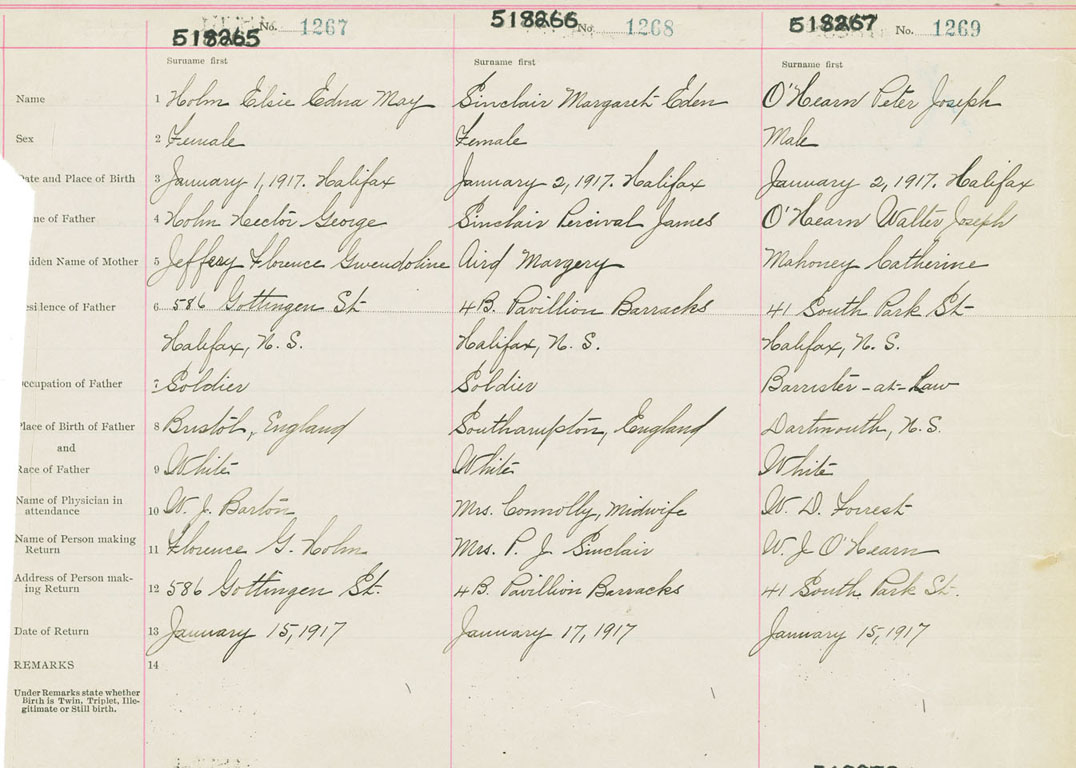 518265 No. 1267 518266 No. 1268 518267 No. 1269
Surname first Surname first Surname first
Name 1 Holm Elsie Edna May Sinclair Margaret Eden O'Hearn Peter Joseph
Sex 2 Female Female Male
ate and Place of Birth 3 January 1, 1917. Halifax January 2, 1917. Halifax January 2, 1917. Halifax
me of Father 4 Holm Hector George Sinclair Percival James O'Hearn Walter Joseph
aiden Name of Mother 5 Jeffery Florence Gwendoline Aird Margery Mahoney Catherine
esidence of Father 6 586 Gottingen St 4B. Pavillion Barracks 41 South Park St
Halifax, N. S. Halifax, N. S. Halifax, N. S.
ccupation of Father 7 Soldier Soldier Barrister-at-Law
Place of Birth of Father 8 Bristol, England Southampton, England Dartmouth, N. S.
and
Race of Father 9 White White White
Name of Physician in attendance 10 W. J. Barton Mrs. Connolly, Midwife W. D. Forrest
Name of Person making Return 11 Florence G. Holm Mrs. P. J. Sinclair W. J. O'Hearn
Address of Person mak-
ing Return 12 586 Gottingen St. 4B. Pavillion Barracks 41 South Park St.
Date of Return 13 January 15, 1917 January 17, 1917 January 15, 1917
REMARKS 14
Under Remarks state whether
Birth is Twin, Triplet, Ille-
gitimate or Still birth.